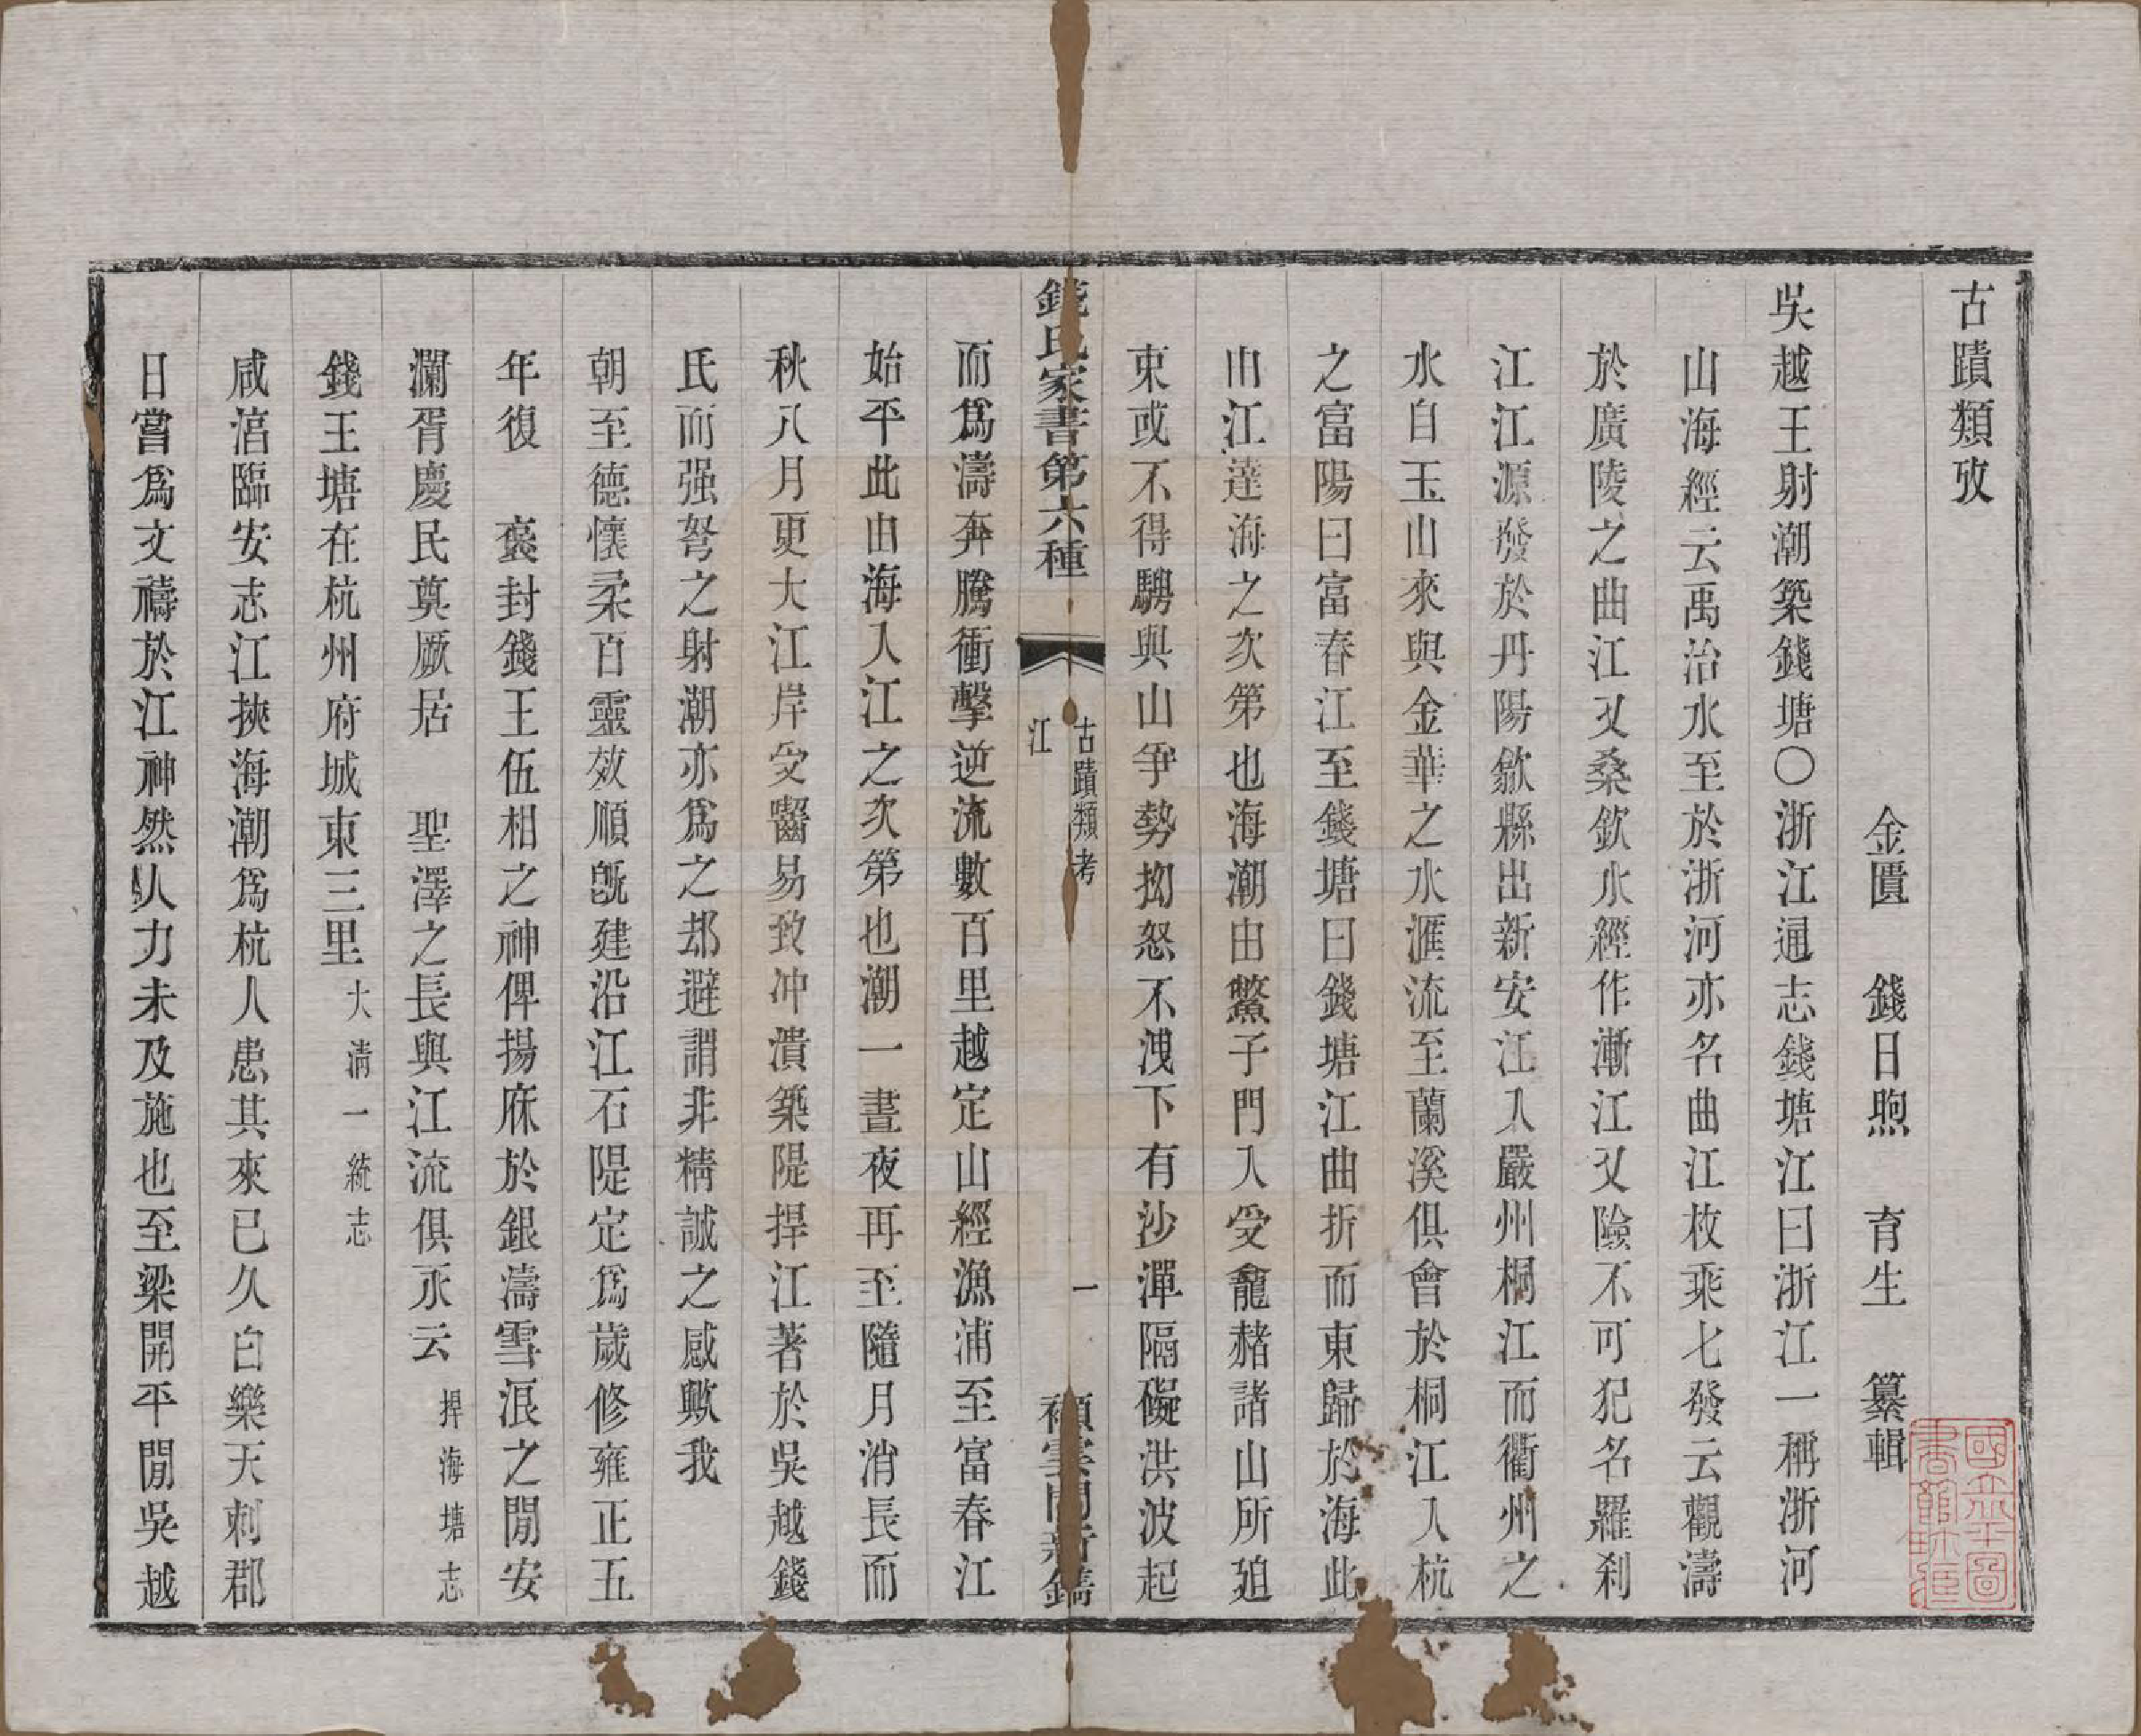 古蹟類攷
金匱 錢日煦 育生 纂輯
吳越王射潮築錢塘〇浙江通志錢塘江曰浙江一稱浙河
山海經云禹治水至於浙河亦名曲江枚乘七發云觀濤
於廣陵之曲江又桑欽水經作漸江又險不可犯名羅刹
江江源發於丹陽歙縣出新安江入嚴州桐江而衢州之
水自玉山來與金華之水滙流至蘭溪俱會於桐江入杭
之富陽曰富春江至錢塘曰錢塘江曲折而東歸於海此
由江達海之次第也海潮由鱉子門入受龕赭諸山所廹
東或不得騁與山爭勢拗怒不洩下有沙潬隔礙洪波起
錢氏家書第六種
古蹟類考
江
一
而爲濤奔騰衝擊逆流數百里越定山經漁浦至富春江
始平此由海入江之次第也潮一晝夜再至隨月消長而
秋八月更大江岸受齧易致冲潰築隄捍江著於吳越錢
氏而强弩之射潮亦爲之却避謂非精誠之感歟我
朝至德懷柔百靈效順旣建沿江石隄定爲歲修雍正五
年復 褒封錢王伍相之神俾揚庥於銀濤雪浪之閒安
瀾胥慶民奠厥居 聖澤之長與江流俱永云捍海塘志
錢王塘在杭州府城東三里大淸一統志
咸湻臨安志江挾海潮爲杭人患其來已久白樂天刺郡
日嘗爲文禱於江神然人力未及施也至梁開平閒吳越
國立北平圖書館收藏